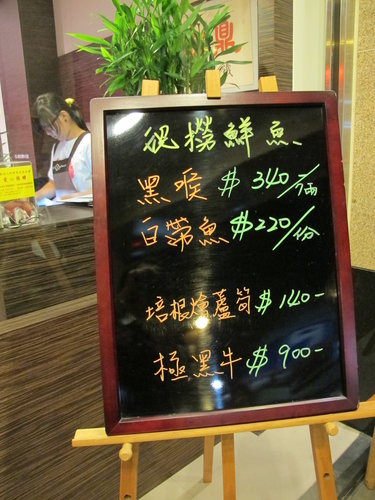 現撈鮮魚
黑喉 $340/兩
白帶魚 $220/份
培根燴蘆筍 $140-
極黑牛 $900-
鼎